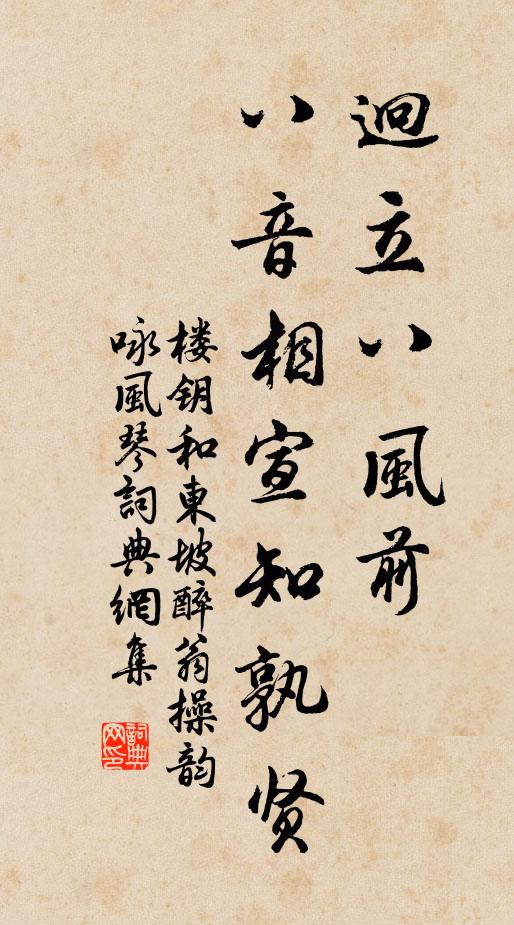 迥立八風前
八音相宣知孰贤
楼钥和東坡醉翁操韵
咏風琴詞典網集
詞典网印